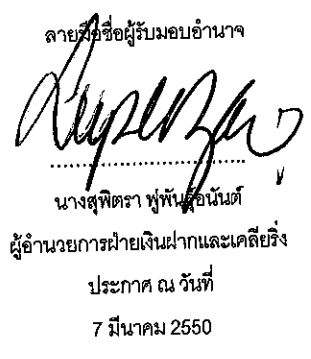 ลายมือชื่อผู้รับมอบอำนาจ
นางสุพิตรา ฟูพันธุ์อนันต์
ผู้อำนวยการฝ่ายเงินฝากและเคลียริ่ง
ประกาศ ณ วันที่
7 มีนาคม 2550